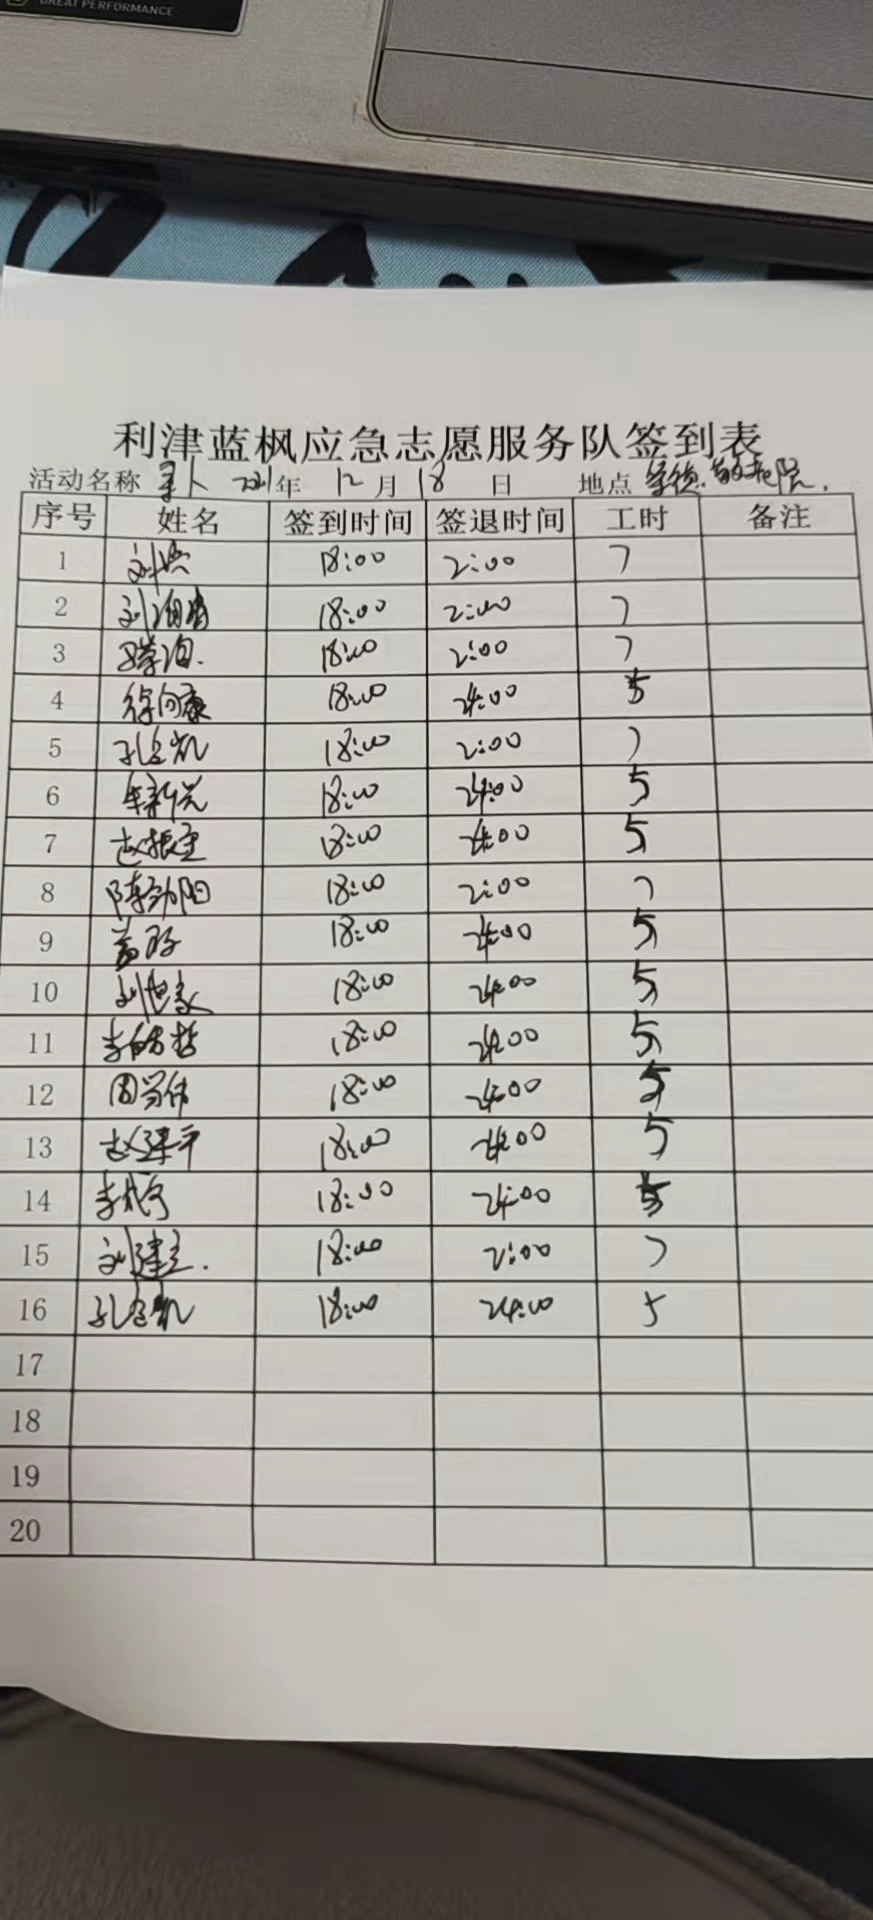 GREAT PERFORMANCE
利津蓝枫应急志愿服务队签到表
活动名称 寻人 2021年 12月 18日 地点
序号 姓名 签到时间 签退时间 工时 备注
1 18:00 2:00 7
2 18:00 2:00 7
3 18:00 2:00 7
4 徐向康 18:00 24:00 5
5 18:00 2:00 7
6 18:00 24:00 5
7 赵振宝 18:00 24:00 5
8 陈劲阳 18:00 2:00 7
9 18:00 24:00 5
10 18:00 24:00 5
11 18:00 24:00 5
12 18:00 24:00 5
13 赵建平 18:00 24:00 5
14 18:00 24:00 5
15 刘建立. 18:00 2:00 7
16 18:00 24:00 5
17
18
19
20